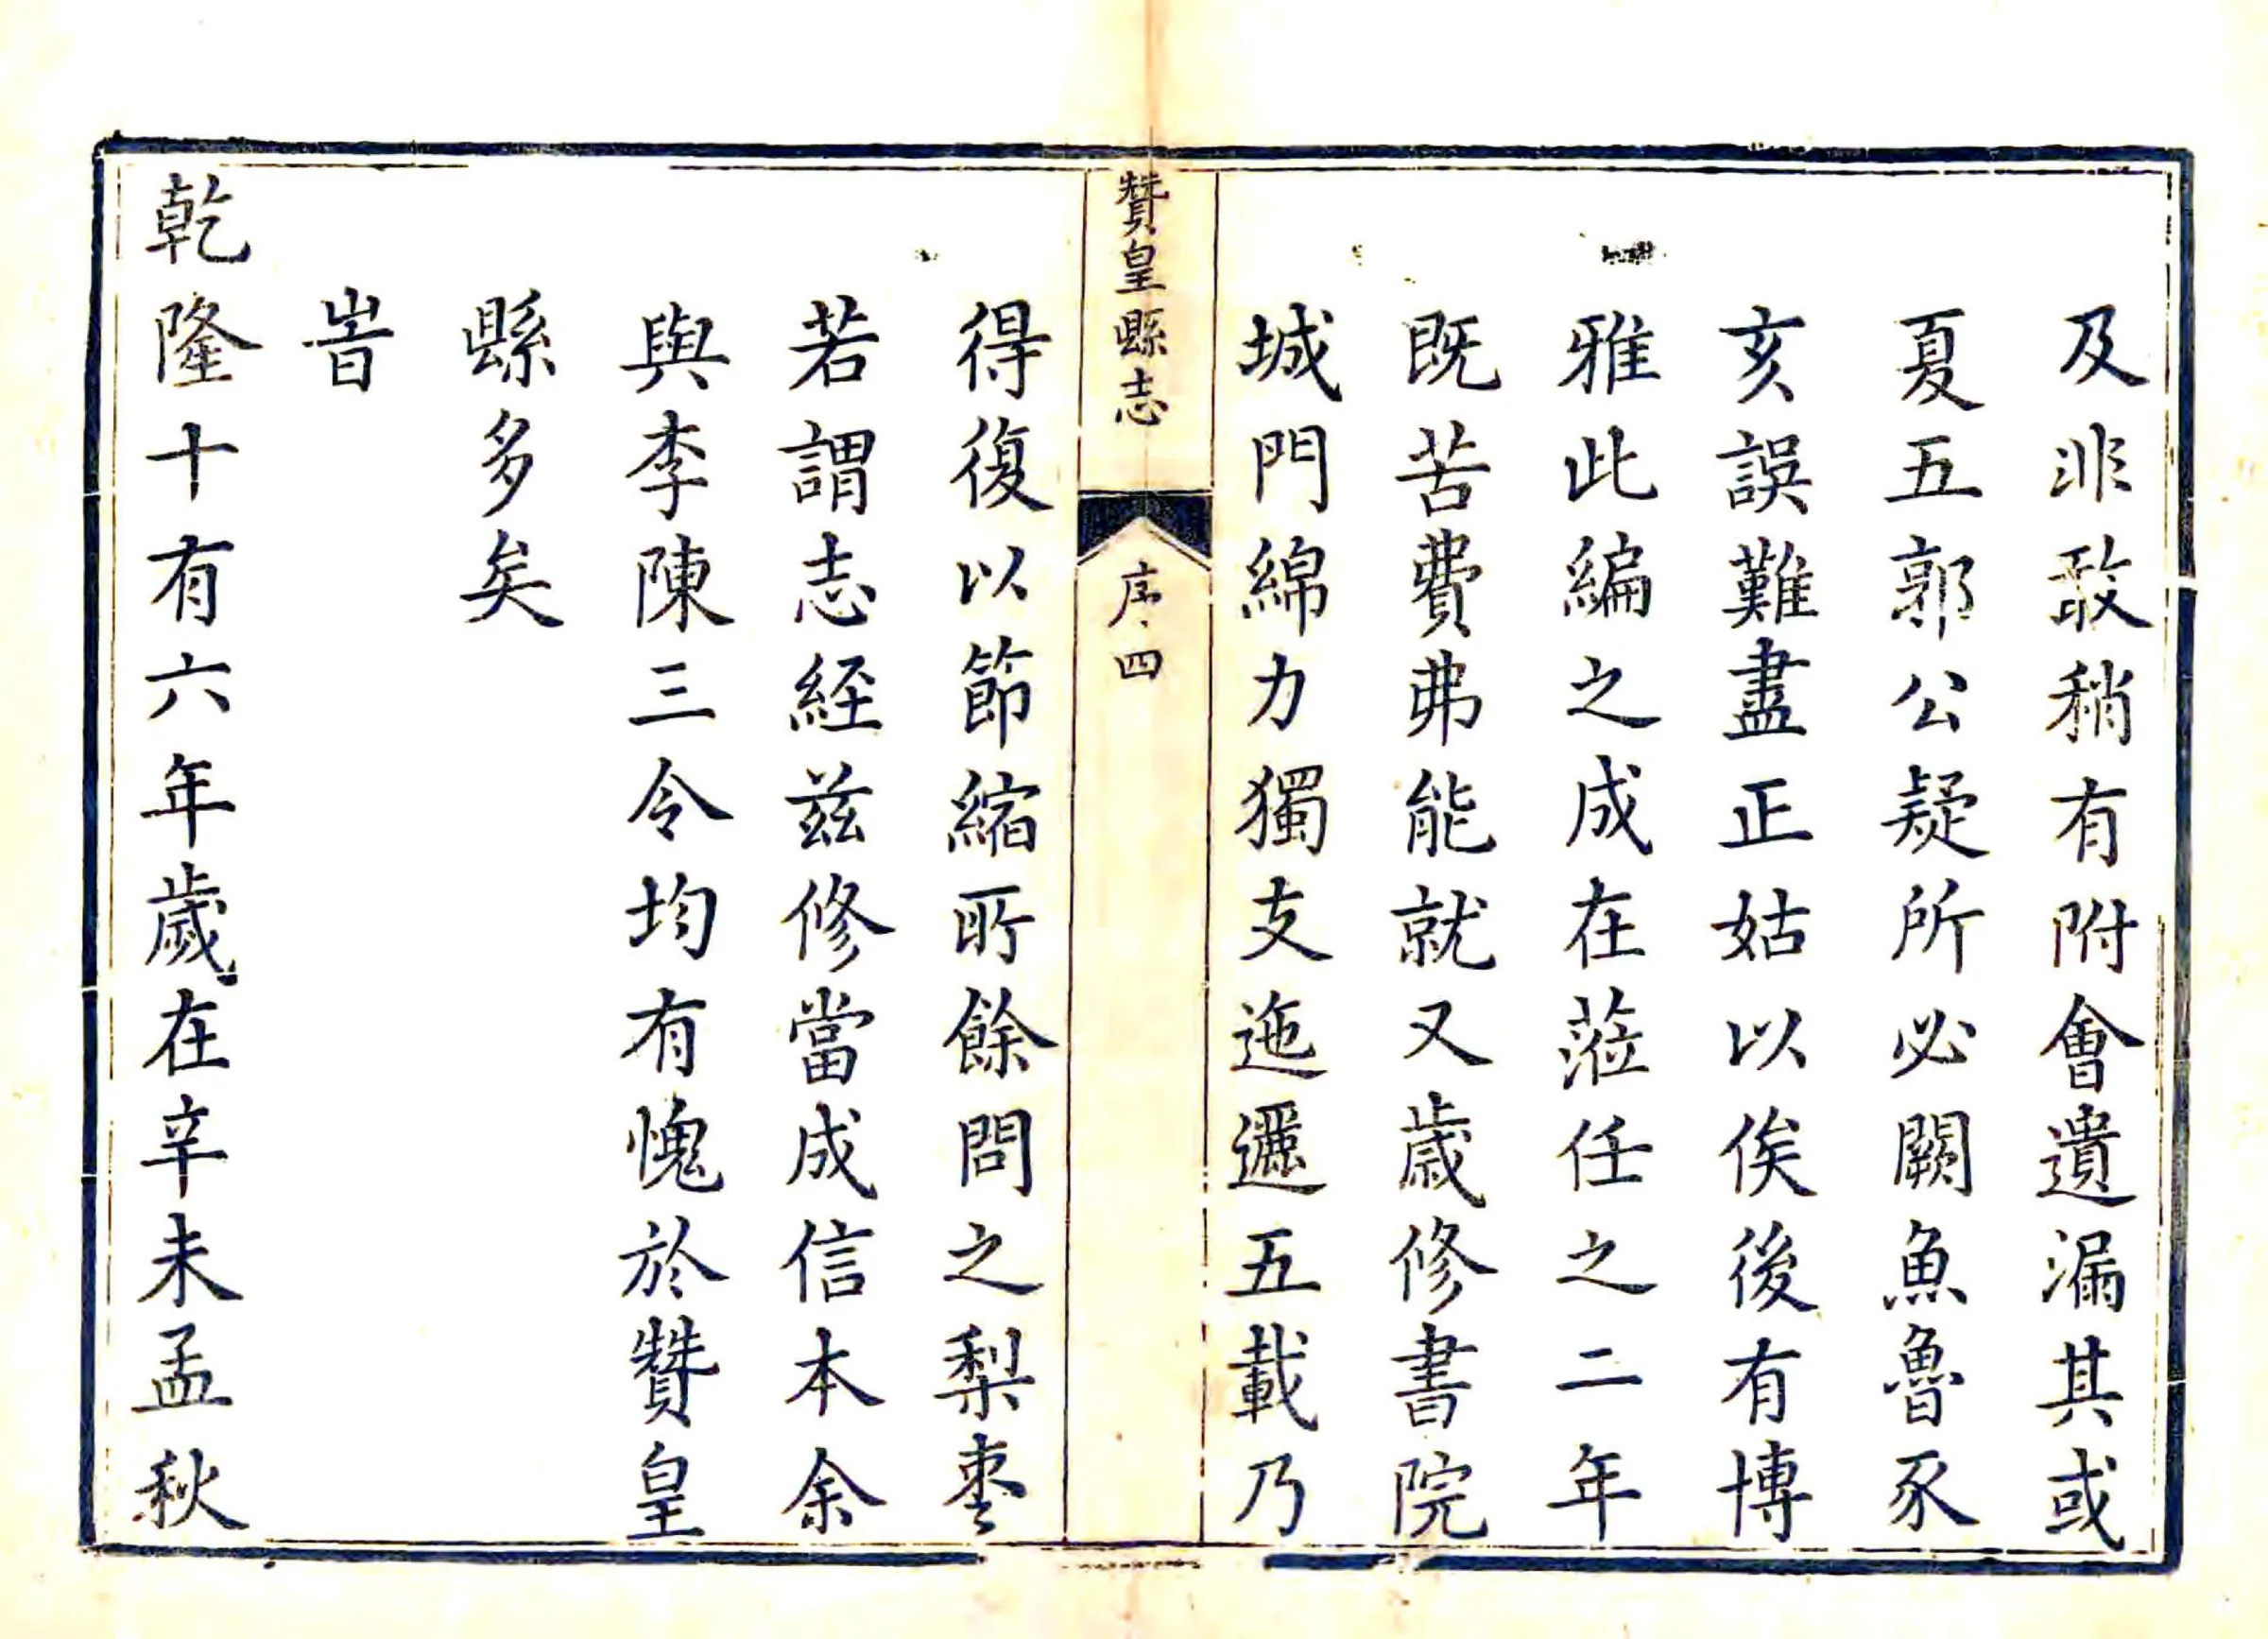 及非敢稍有附會遺漏其或
夏五郭公疑所必闕魚魯豕
亥誤難盡正姑以俟後有博
雅此編之成在蒞任之二年
既苦費弗能就又歲修書院
城門綿力獨支迤邐五載乃
贊皇縣志
序 四
得復以節縮所餘問之梨棗
若謂志經兹修當成信本余
與李陳三令均有愧於贊皇
縣多矣
旹
乾隆十有六年歲在辛未孟秋